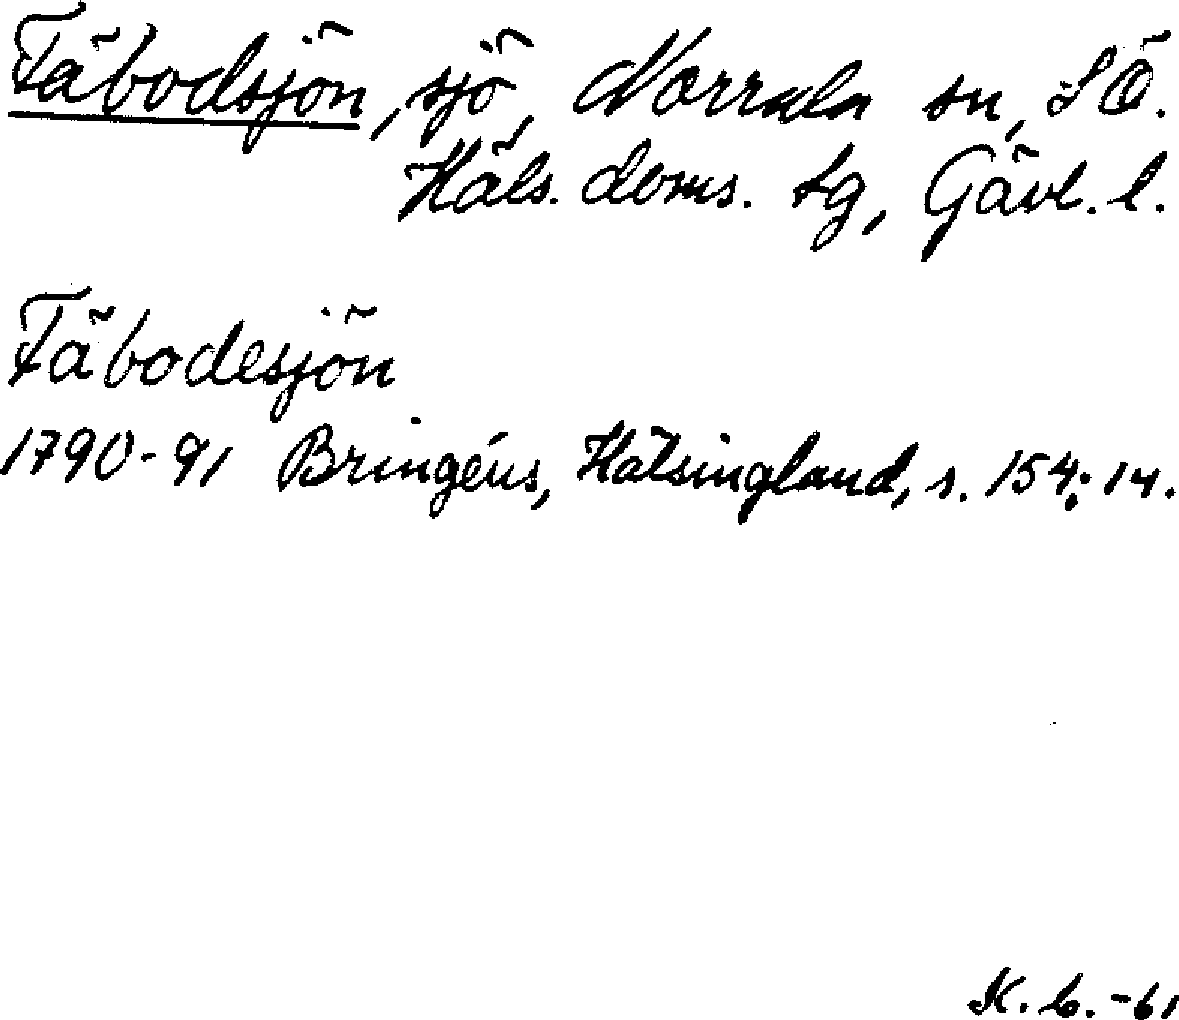 Fäbodsjön, sjö, Norrala sn, SÖ.
Häls. doms. tg, Gävl. l.
Fäbodesjön
1790-91 Bringéus, Hälsingland, s. 154: 14.
K. G. -61